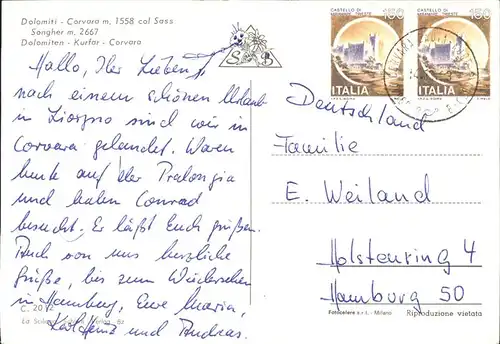 Dolomiti - Corvara m. 1558 col Sass
Songher m. 2667
Dolomiten - Kurfar - Corvara
Hallo, Ihr Lieben,
nach einem schönen Urlaub
in sind wir in
Corvara gelandet. Waren
heute auf der Pralongia
und haben Conrad
besucht. Er läßt Euch grüßen.
Auch von uns herzliche
Grüße, bis zum Wiedersehen
in Hamburg, Eure Maria,
Karl Heinz und Andreas.
C. 20
S B
CASTELLO DI
MIRAMARE TRIESTE
150
ITALIA
CASTELLO DI
MIRAMARE TRIESTE
150
ITALIA
Deutschland
Familie
E. Weiland
Holstenring 4
Hamburg 50
Fotocelere s.r.l. - Milano Riproduzione vietata